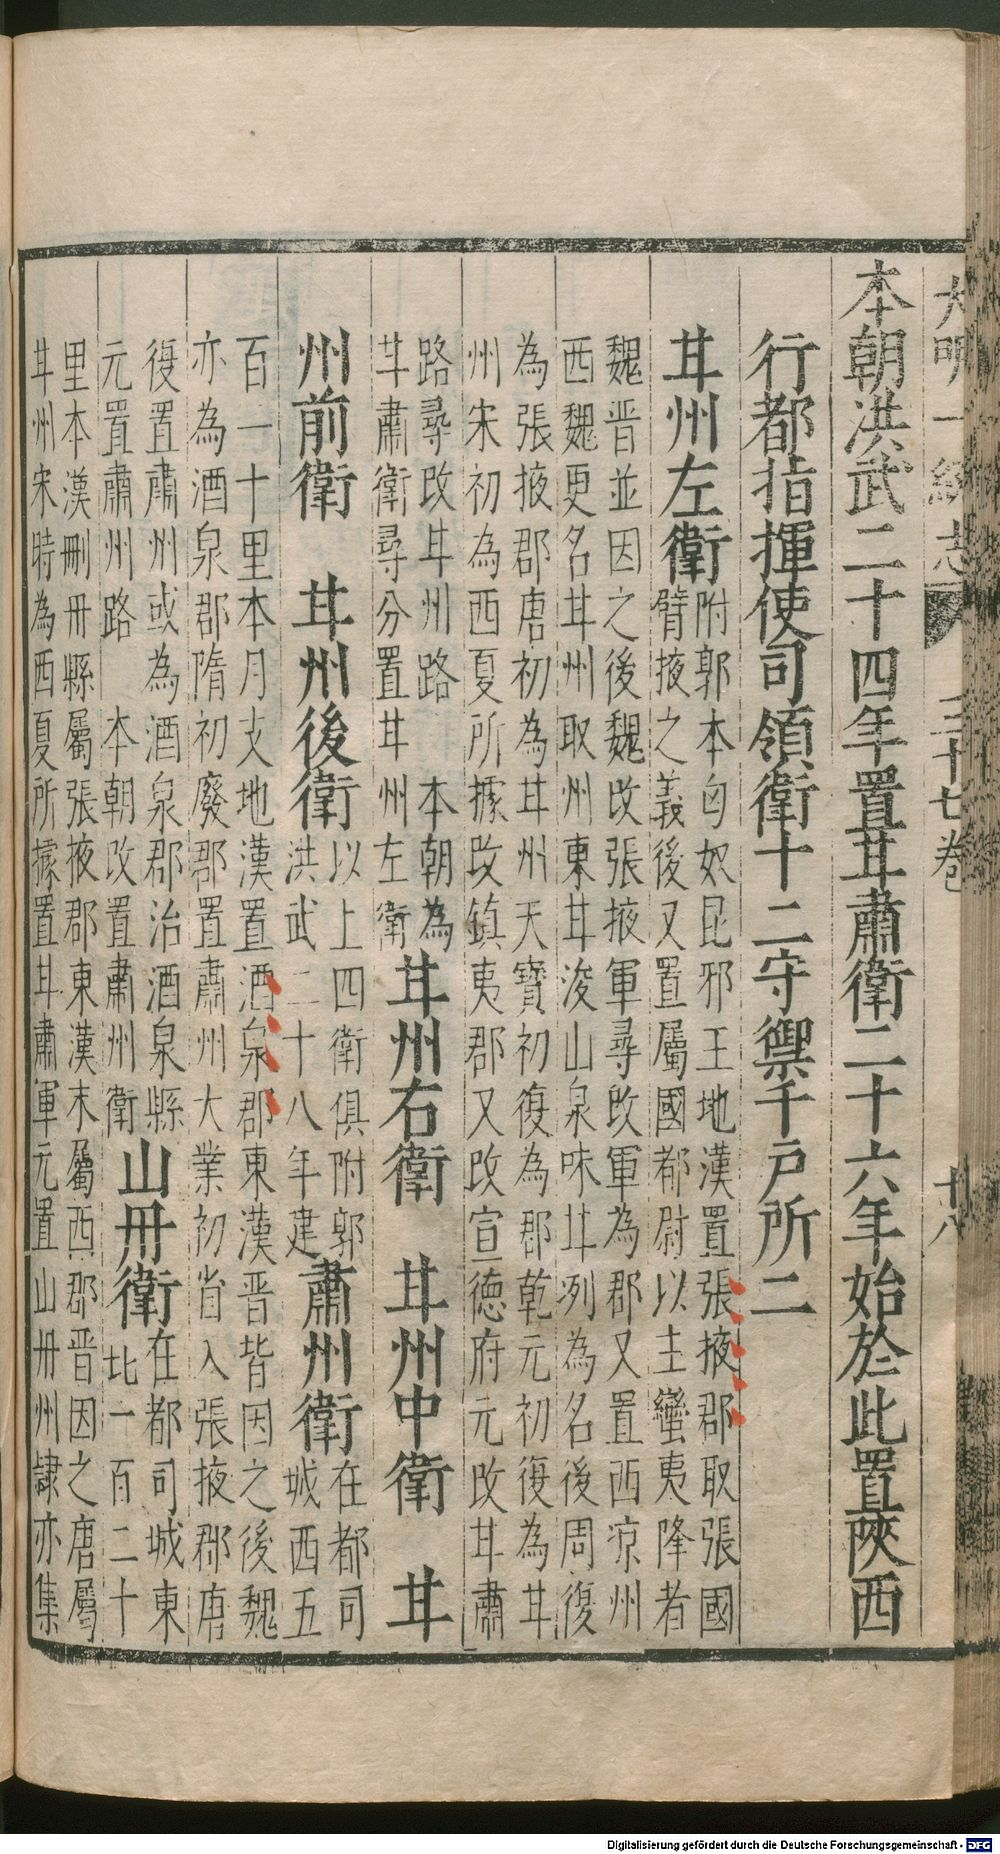 大明一統志 三十七卷 十八
本朝洪武二十四年置甘肅衛二十六年始於此置陝西
行都指揮使司領衛十二守禦千戶所二
甘州左衛
附郭本匈奴昆邪王地漢置張掖郡取張國
臂掖之義後又置屬國都尉以主蠻夷降者
魏晉並因之後魏改張掖軍尋改軍為郡又置西凉州
西魏更名甘州取州東甘浚山泉味甘冽為名後周復
為張掖郡唐初為甘州天寶初復為郡乾元初復為甘
州宋初為西夏所據改鎮夷郡又改宣德府元改甘肅
路尋改甘州路 本朝為
甘肅衛尋分置甘州左衛
甘州右衛 甘州中衛 甘
州前衛 甘州後衛
以上四衛俱附郭
洪武二十八年建
肅州衛
在都司
城西五
百一十里本月支地漢置酒泉郡東漢晉皆因之後魏
亦為酒泉郡隋初廢郡置肅州大業初省入張掖郡唐
復置肅州或為酒泉郡治酒泉縣
元置肅州路 本朝改置肅州衛
山丹衛
在都司城東
北一百二十
里本漢刪丹縣屬張掖郡東漢末屬西郡晉因之唐屬
甘州宋時為西夏所據置甘肅軍元置山丹州隷亦集
Digitalisierung gefördert durch die Deutsche Forschungsgemeinschaft - DFG